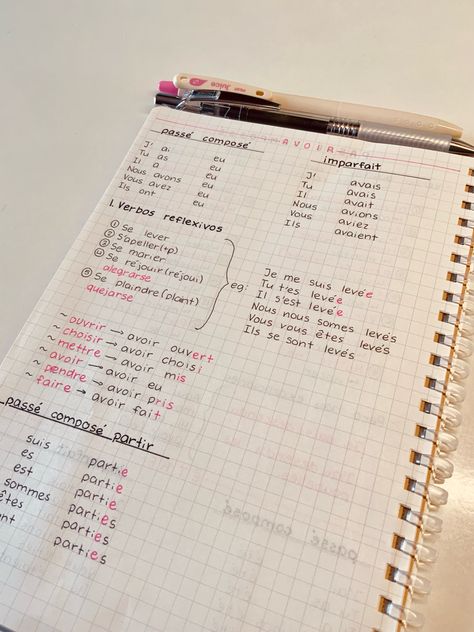 Juice
AVOIR
passé composé
J' ai eu
Tu as eu
Il a eu
Nous avons eu
Vous avez eu
Ils ont eu
imparfait
J' avais
Tu avais
Il avait
Nous avions
Vous aviez
Ils avaient
1. Verbos reflexivos
① Se lever
② S'apeller(+p)
③ Se marier
④ Se réjouir (réjoui)
alegrarse
⑤ Se plaindre (plaint)
quejarse
eg:
Je me suis levée
Tu t'es levée
Il s'est levée
Nous nous somes levés
Vous vous êtes levés
Ils se sont levés
~ ouvrir → avoir ouvert
~ choisir → avoir choisi
~ mettre → avoir mis
~ avoir → avoir eu
~ prendre → avoir pris
~ faire → avoir fait
passé composé partir
suis partie
es partie
est partie
sommes parties
êtes parties
parties